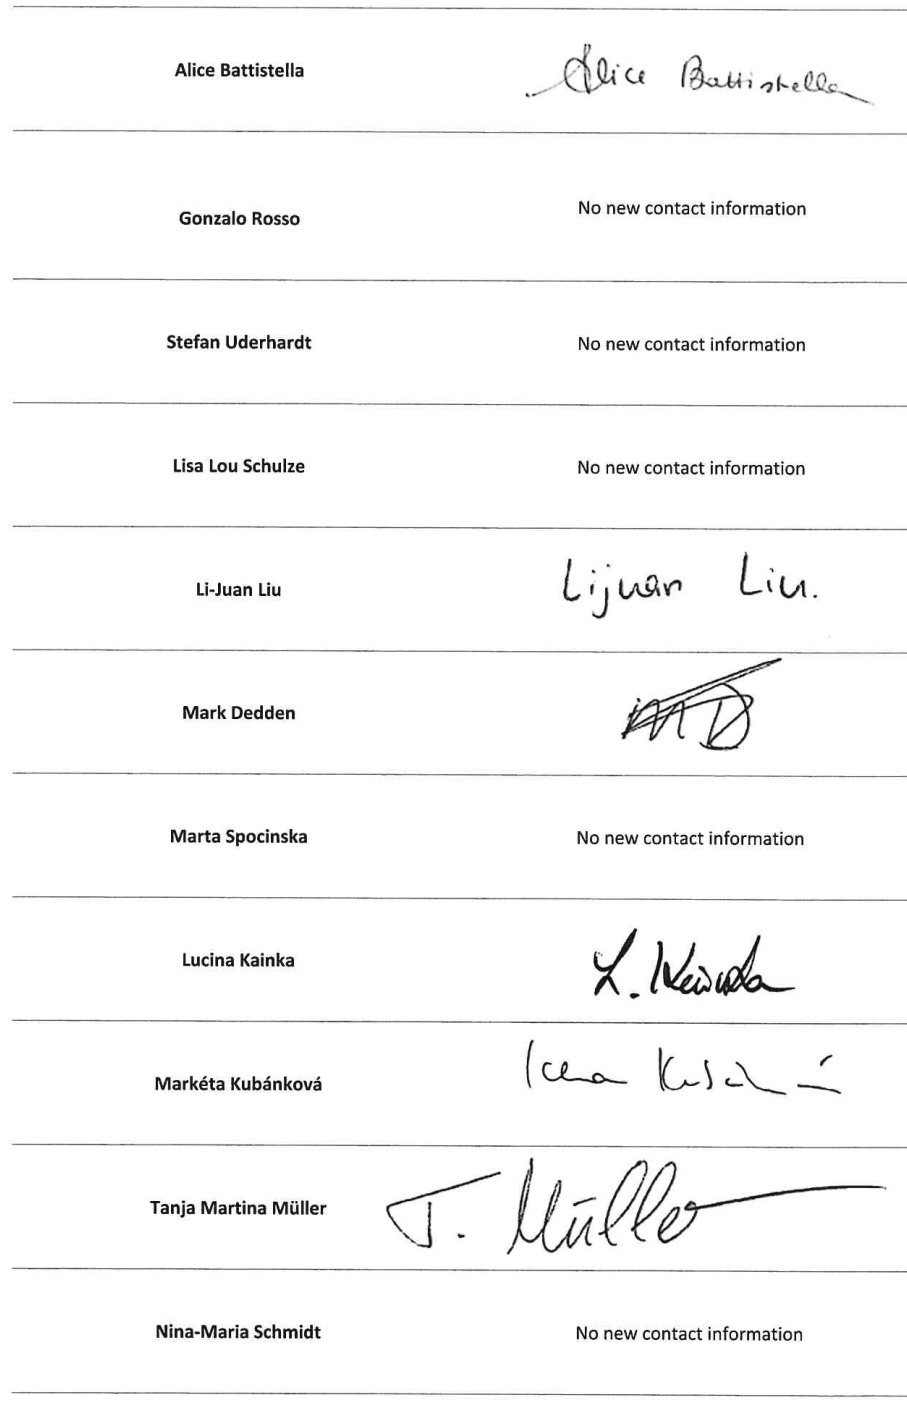 Alice Battistella Alice Battistella
Gonzalo Rosso No new contact information
Stefan Uderhardt No new contact information
Lisa Lou Schulze No new contact information
Li-Juan Liu Lijuan Liu.
Mark Dedden MD
Marta Spocinska No new contact information
Lucina Kainka L. Kainka
Markéta Kubánková
Tanja Martina Müller T. Müller
Nina-Maria Schmidt No new contact information